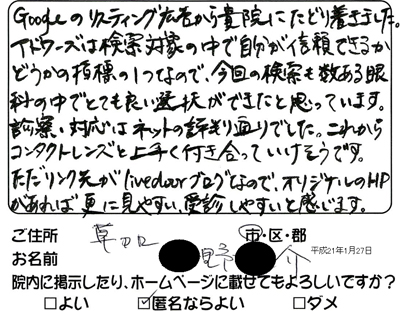 Googleのリスティング広告から貴院にたどり着きました。
アドワーズは検索対象の中で自分が信頼できるか
どうかの指標の1つなので、今回の検索も数ある眼
科の中でとても良い選択ができたと思っています。
診察・対応はネットの評判通りでした。これから
コンタクトレンズと上手く付き合っていけそうです。
ただリンク先がlivedoorブログなので、オリジナルのHP
があれば更に見やすい、受診しやすいと感じます。
ご住所 市・区・郡
お名前 野 介 平成21年1月27日
院内に掲示したり、ホームページに載せてもよろしいですか?
□よい ☑匿名ならよい □ダメ